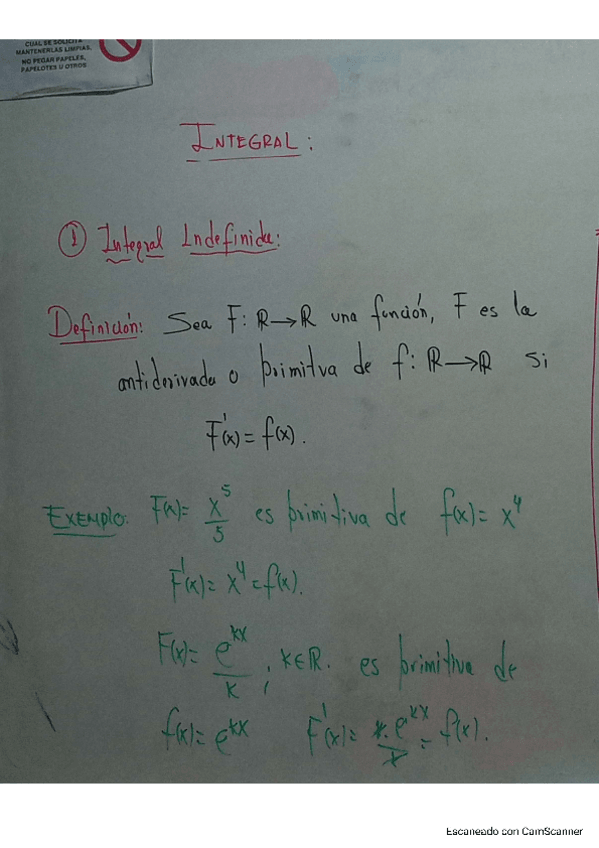 CUAL SE SOLICITA
MANTENERLAS LIMPIAS,
NO PEGAR PAPELES,
PAPELOTES U OTROS
INTEGRAL:
① Integral Indefinida:
Definición: Sea F: ℝ→ℝ una función, F es la
antiderivada o primitva de f: ℝ→ℝ si
F'(x) = f(x).
EXEMPlo: F(x)= x^5/5 es primitiva de f(x)= x^4
F'(x)= x^4 = f(x).
F(x)= e^{kx}/k, k∈ℝ. es primitiva de
f(x)= e^{kx} F'(x)= k.e^{kx}/k = f(x).
Escaneado con CamScanner